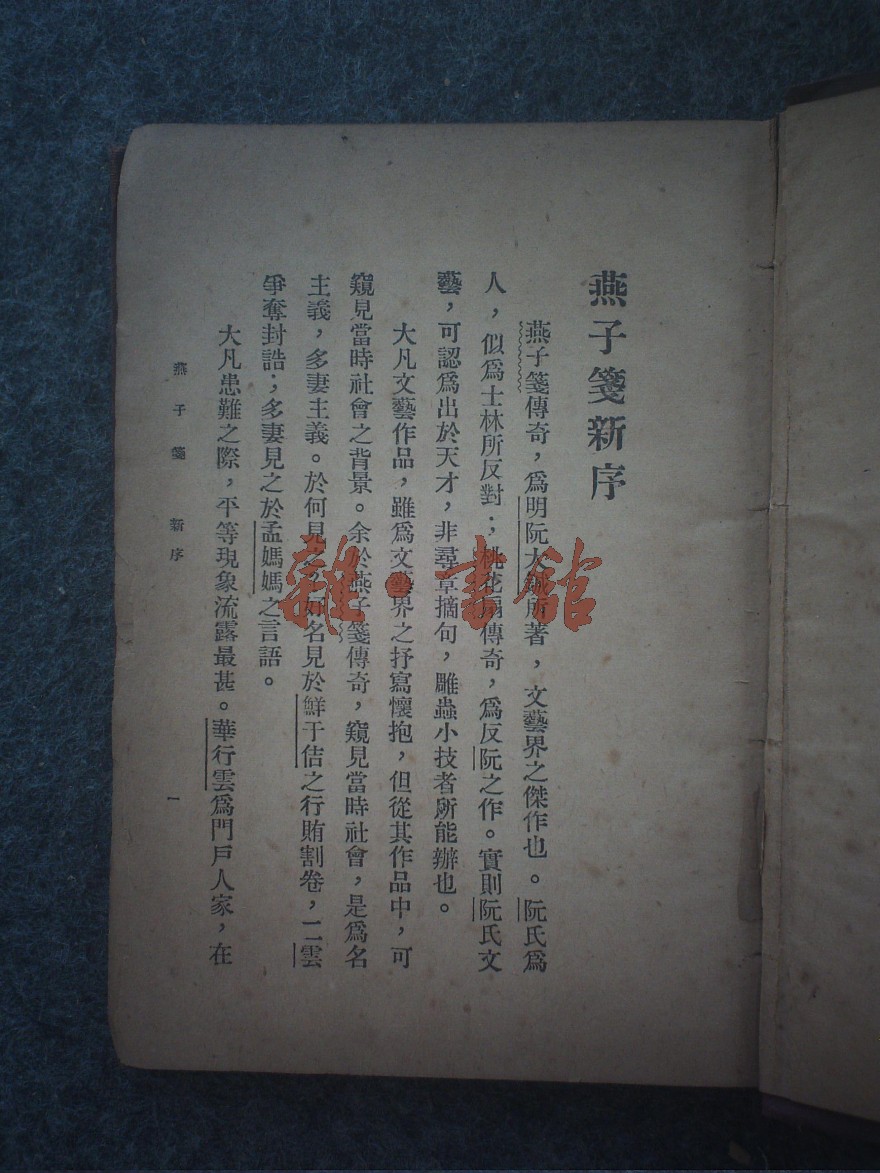 燕子箋新序
燕子箋傳奇，爲明阮大鋮所著，文藝界之傑作也。阮氏爲
人，似爲士林所反對；桃花扇傳奇，爲反阮之作。實則阮氏文
藝，可認爲出於天才，非尋章摘句，雕蟲小技者所能辦也。
大凡文藝作品，雖爲文藝界之抒寫懷抱，但從其作品中，可
窺見當時社會之背景。余於燕子箋傳奇，窺見當時社會，是爲名
主義，多妻主義。於何見之？好名見於鮮于佶之行賄割卷，二雲
爭奪封誥；多妻見之於孟媽媽之言語。
大凡患難之際，平等現象流露最甚。華行雲爲門戶人家，在
燕子箋 新序
一
雜·書館